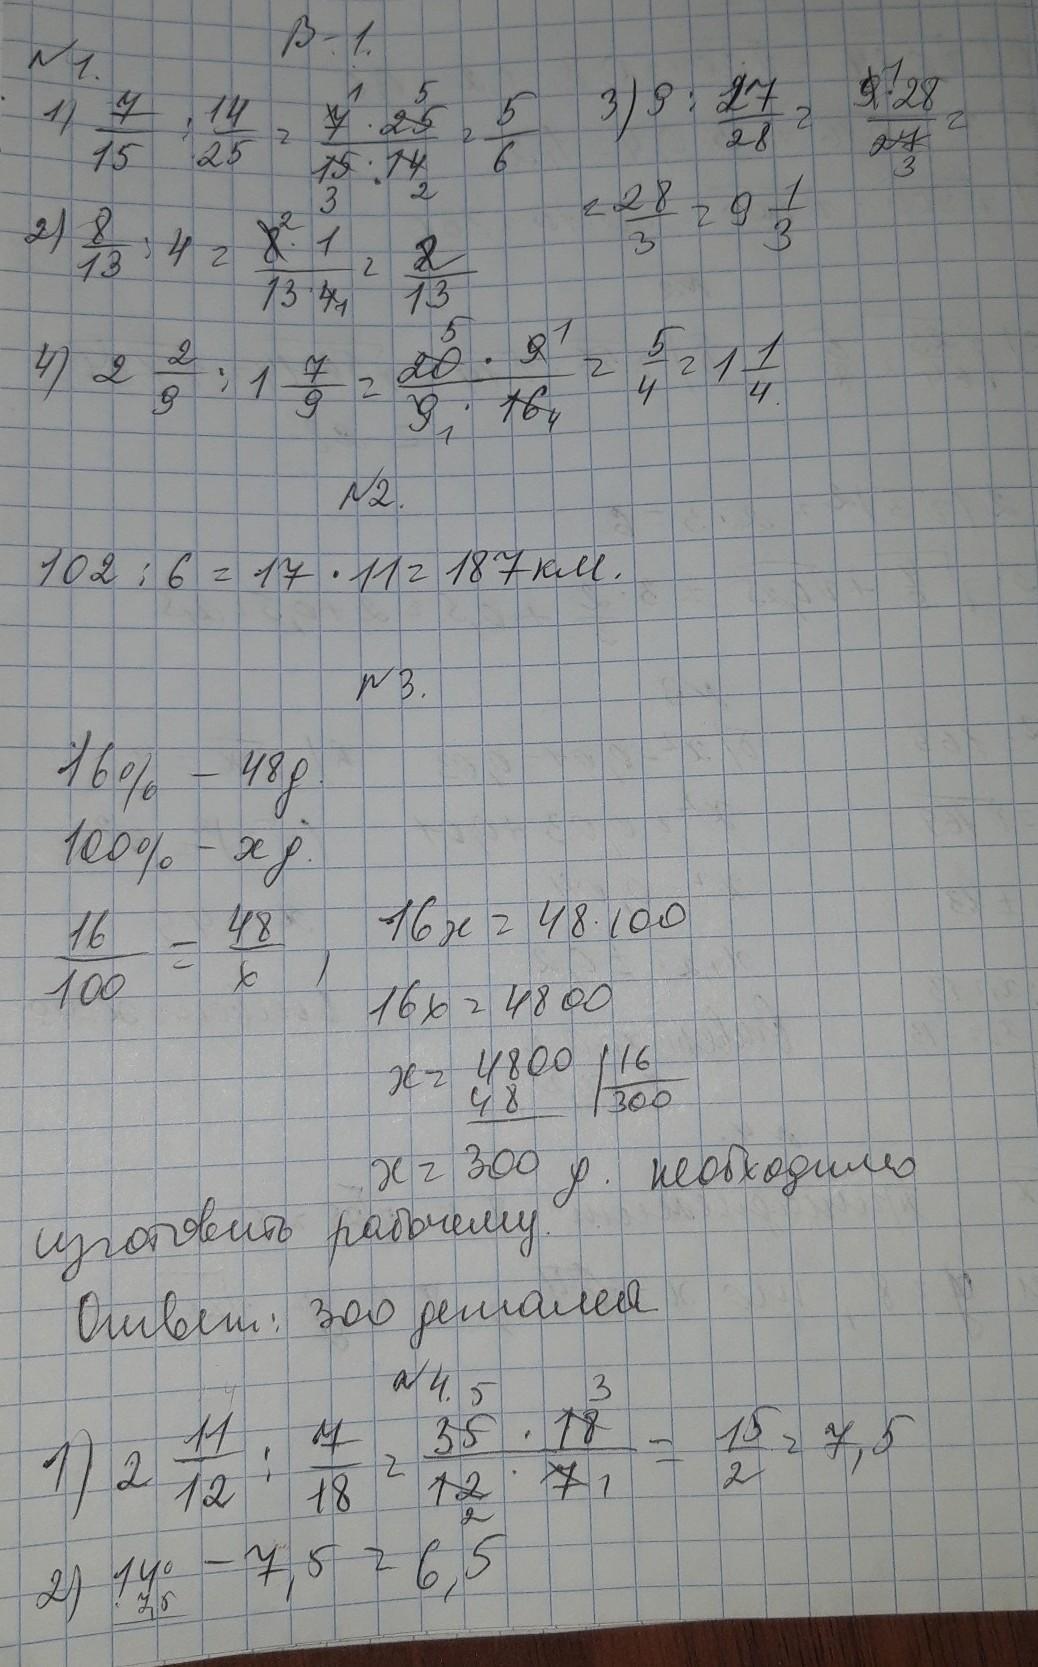 В-1.
№1.
1) 7/15 : 14/25 = 7·25/15·14 = 5/6
3) 9 : 27/28 = 9·28/27 =
= 28/3 = 9 1/3
2) 8/13 : 4 = 8·1/13·4 = 2/13
4) 2 2/9 : 1 7/9 = 20·9/9·16 = 5/4 = 1 1/4.
№2.
102 : 6 = 17 · 11 = 187 км.
№3.
16% - 48 д.
100% - x д.
16/100 = 48/x , 16x = 48·100
16x = 4800
x = 4800 | 16
48 300
x = 300 д. необходимо
изготовить рабочему.
Ответ: 300 деталей
№4.
1) 2 11/12 : 7/18 = 35·18/12·7 = 15/2 = 7,5
2) 14 - 7,5 = 6,5
7,5